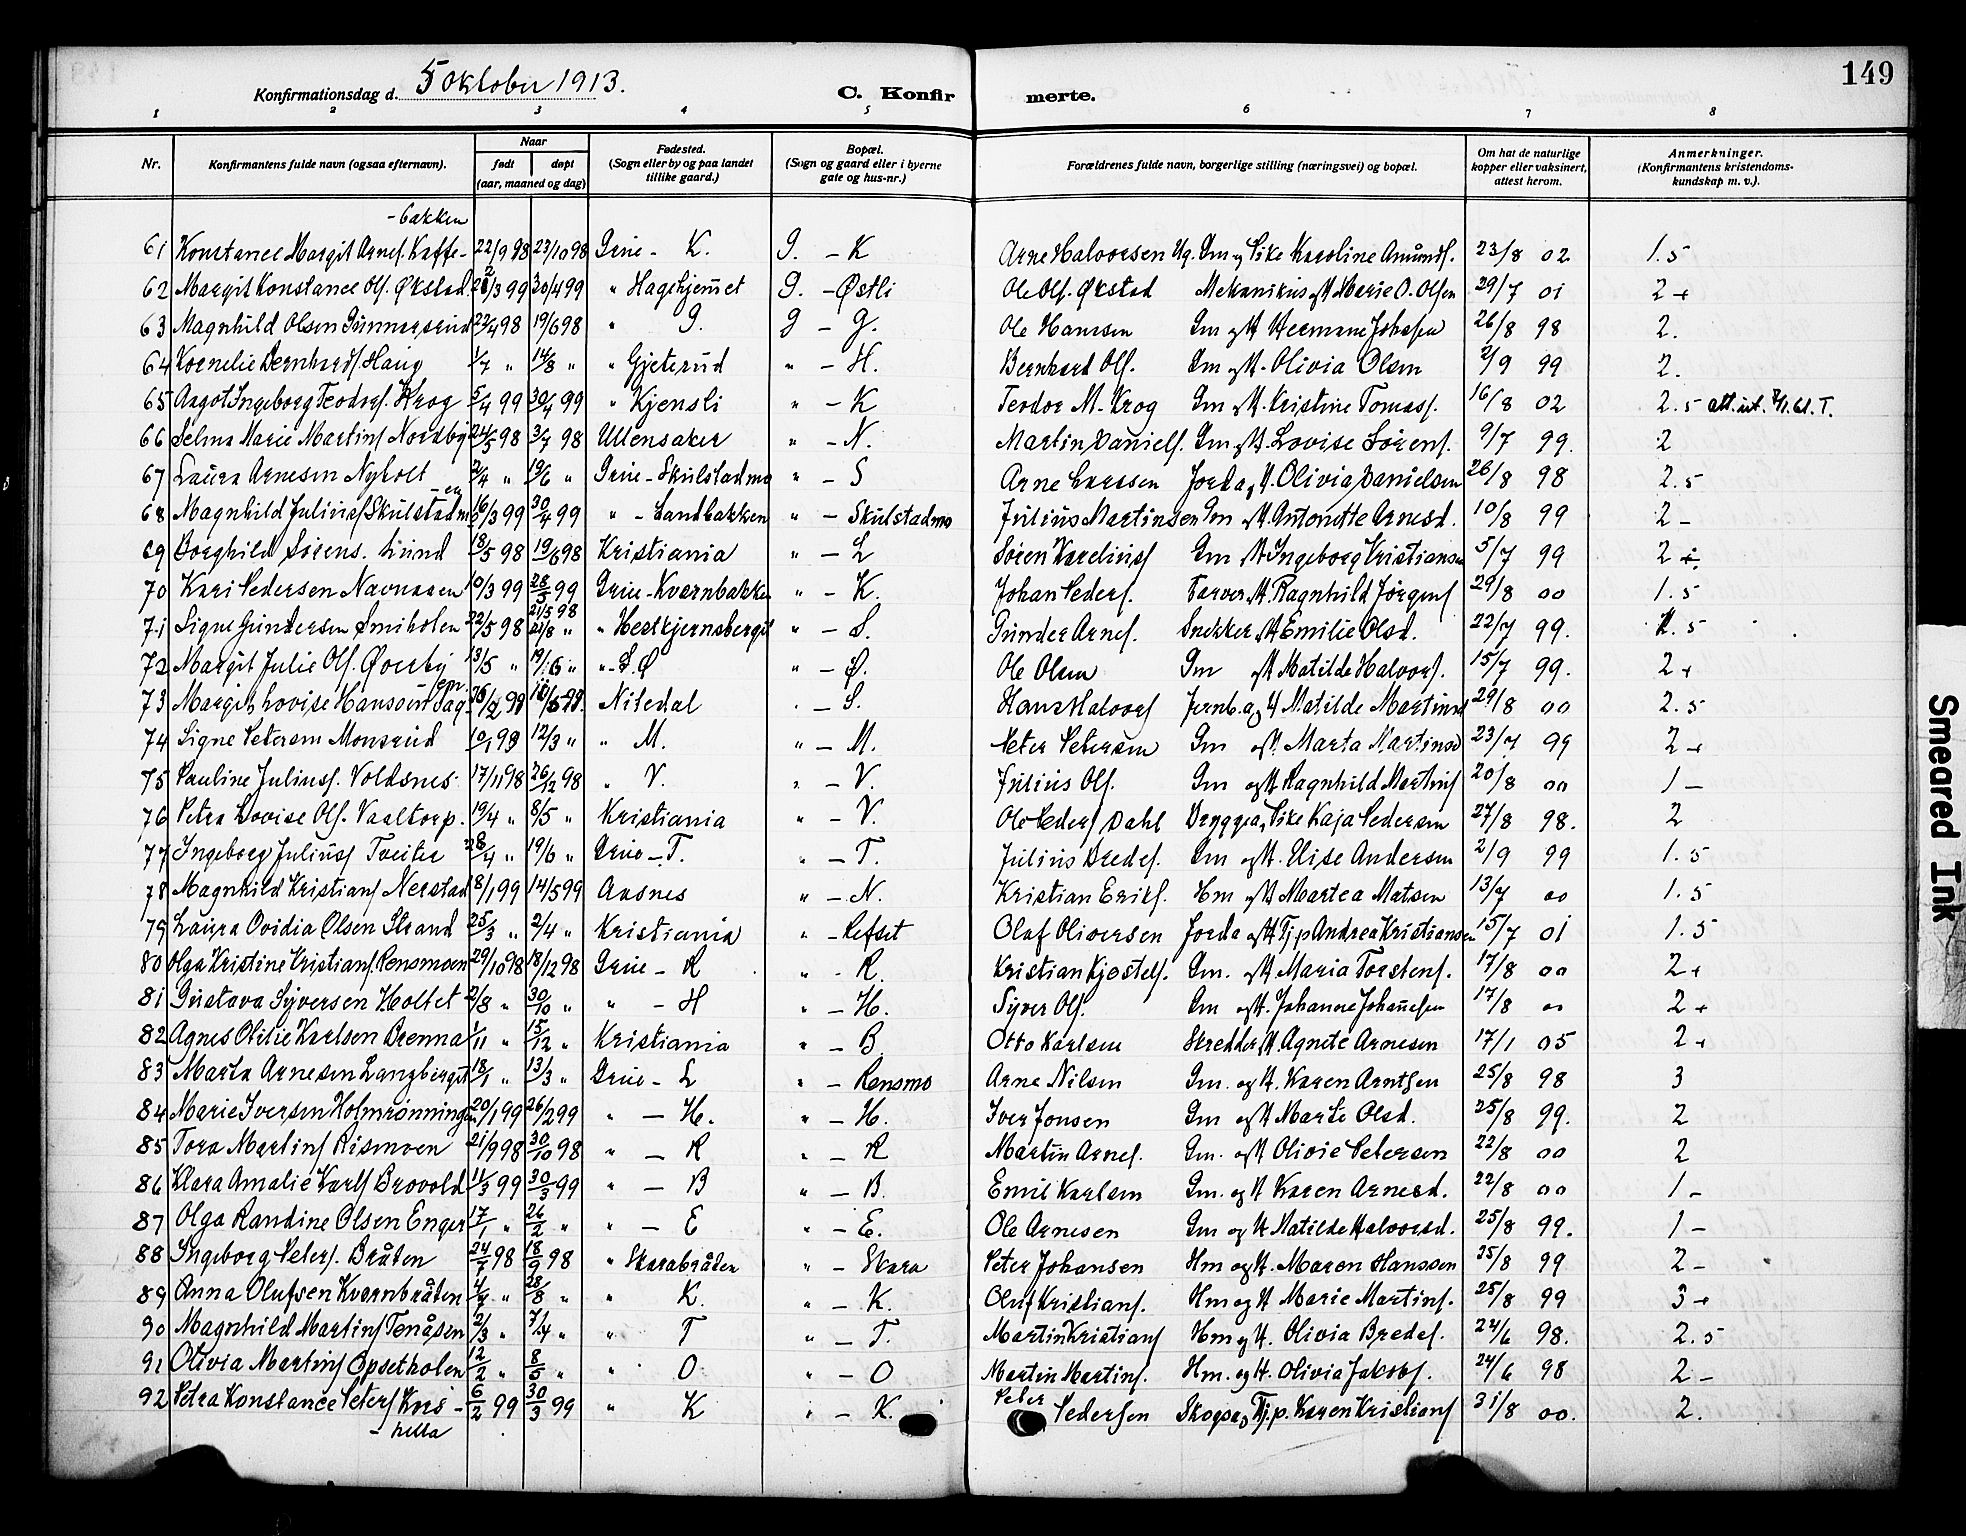 149
Konfirmationsdag d. 5 Oktober 1913.
C. Konfirmerte.
1 2 3 4 5 6 7 8
Nr. Konfirmantens fulde navn (ogsaa efternavn). Naar født døpt (aar, maaned og dag) Fødested. (Sogn eller by og paa landet tillike gaard.) Bopæl. (Sogn og gaard eller i byerne gate og hus-nr.) Forældrenes fulde navn, borgerlige stilling (næringsvei) og bopæl. Om hat de naturlige kopper eller vaksinert, attest herom. Anmerkninger. (Konfirmantens kristendomskundskap m. v.).
-bakken
61 Konstance Margit Arnes. Kaffe- 22/9 98 23/10 98 Grue - K. G. - K Arne Halvorsen Gm og Pike Karoline Amunds. 23/8 02 1.5
62 Margit Konstance Ols. Økstad /3 99 30/4 99 " Hagehjemmet G. - Østli Ole Ols. Økstad Mekanikus og H Marie O. Olsen 29/7 01 2+
63 Magnhild Olsen Gunnarsrud 22/4 98 19/6 98 " G. G - G. Ole Hanssen Gm og H Hermane Johasen 26/8 98 2.
64 Kornelie Bernhards. Haug 1/7 " 14/8 " " Gjeterud " - H. Bernhard Ols. Gm og H. Olivia Olsen 2/9 99 2.
65 Aagot Ingeborg Teodors. Krog 5/4 99 30/4 99 " Kjensli " - K Teodor M. Krog Gm og H. Kristine Tomass. 16/8 02 2.5 att. ut.
66 Selma Marie Martins Nordby 24/5 98 3/7 98 Ullensaker " - N. Martin Daniels. Gm og H. Lovise Sørens. 9/7 99. 2
67 Laura Arnesen Nyholt 2/4 " 19/6 " Grue - Skulstadmo " - S Arne Larssen Jorda og H. Olivia Danielsen 26/8 98 2.5
68 Magnhild Julius Skulstadmoen 16/3 99 30/4 99 " - Sandbakken " - Skulstadmo Julius Martinsen Gm og H. Antonette Arnesd. 10/8 99 2-
69 Borghild Sørens. Lund 18/5 98 19/6 98 Kristiania " - L Søren Karelius Gm og H Ingeborg Kristiansen 5/7 99 2+
70 Kari Pedersen Navnaaen 10/3 99 28/5 99 Grue - Kvernbakken " - K. Johan Peders. Farver og H. Ragnhild Jørgens 29/8 00 1.5
71 Signe Gundersen Smiholen 22/5 98 21/5 98 21/8 " " Hestkjernsberget " - S. Gunder Arnes. Snekker og H Emilie Olsd. 22/7 99. 2.5
72 Margit Julie Ols. Øverby 13/5 " 19/6 " " - Ø " - Ø. Ole Olsen Gm og H Matilde Halvors. 15/7 99. 2+
73 Margit Lovise Hanssen Sagen Nitedal - S. Hans Halvors Jernb.a og H Matilde Martinsd 29/8 00 2.5
74 Signe Petersen Monsrud 10/1 99 12/3 " " M. " - M. Peter Petersen Gm og H. Marta Martinsd 23/7 99 2+
75 Pauline Julius. Voldsnes 17/11 98 26/12 98 " V. " - V. Julius Ols. Gm og H Ragnhild Martins 20/8 00 1-
76 Petra Lovise Ols. Vaaltorp. 19/4 " 8/5 " Kristiania " - V. Ole Peders Dahl Bryggea, Pike Kaja Pedersen 27/8 98. 2
77 Ingeborg Julius Tveiter 28/4 " 19/6 " Grue - T. " - T. Julius Bredes. Gm og H. Elise Andersen 2/9 99 1.5
78 Magnhild Kristians Nerstad 18/1 99 14/5 99 Aasnes " - N. Kristian Eriks. Hm og H Martea Matsen 13/7 00 1.5
79 Laura Ovidia Olsen Strand 25/3 " 2/4 " Kristiania " - Refset Olaf Oliversen Jorda og H Tj.p Andrea Kristiansen 15/7 01 1.5
80 Olga Kristine Kristians. Rensmoen 29/10 98 18/12 98 Grue - R " - R. Kristian Kjøstels. Gm. og H Maria Torstens. 17/8 00 2+
81 Gustava Syversen Holtet 2/8 " 30/10 " " - H " - H. Syver Ols. Gm og H. Johanne Johannesen 17/8 00 2+
82 Agnes Otilie Karlsen Brenna 1/11 " 15/12 " Kristiania " - B. Otto Karlsen Skredder, H Agnete Arnesen 17/1 05 2+
83 Marta Arnesen Langberget 18/1 " 13/3 " Grue - L " - Rensmo Arne Nilsen Gm. og H. Karen Arntsen 25/8 98 3
84 Marie Iversen Holmrønningen 20/1 99 26/2 99 " - H. " - H. Iver Jonsen Gm og H Marte Olsd. 25/8 99. 2
85 Tora Martins Rismoen 21/9 98 30/10 98 " - R " - R Martin Arnes. Gm. og H Olivie Petersen 22/8 00 2
86 Klara Amalie Karls Brovold 11/3 99 30/3 99 " - B " - B. Emil Karlsen Gm. og H Karen Arnesd. 22/8 00 1-
87 Olga Randine Olsen Enger 17/1 " 26/2 " " - E " - E. Ole Arnesen Gm og H Matilde Halvorsd. 25/8 99. 1-
88 Ingeborg Peters. Bråten 24/7 98 18/9 98 " Skarabråten " - Skara Peter Johansen Hm og H. Maren Hanssen 25/8 99 2-
89 Anna Olufsen Kvernbråten 4/7 " 28/8 " " K. " - K. Oluf Kristians. Hm og H Marie Martins. 25/8 99 3+
90 Magnhild Martins Tenåsen 2/3 " 7/4 " " T " - T. Martin Kristians Hm og H. Olivia Bredes. 24/6 98. 2.5
91 Olivia Martins Opsetholen 12/2 " 8/5 " " O " - O Martin Martins. Hm. og H. Olivia Jakobs. 24/6 98 2-
92 Petra Konstance Peters Kris- 6/2 99 30/3 99 " K " - K. Peter Pedersen Skogsa, Tj.p. Karen Kristians 31/8 00. 2.
-hella
Smeared Ink